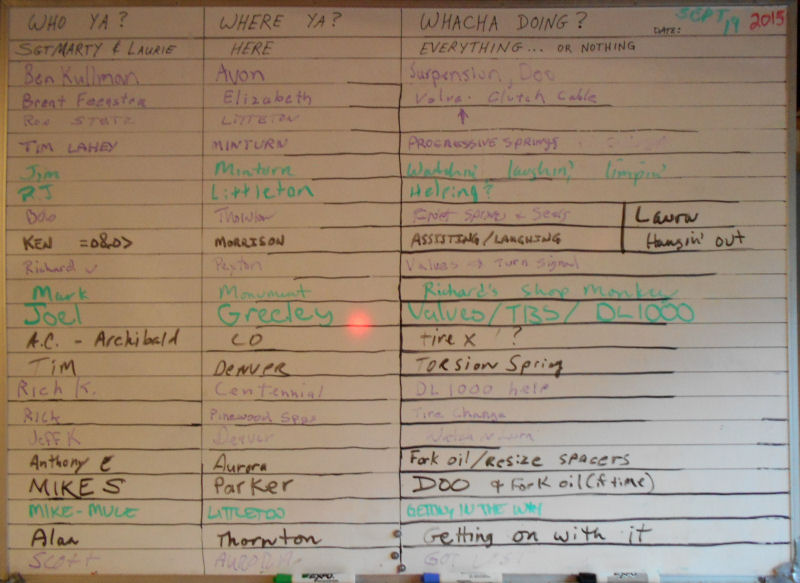 WHO YA? WHERE YA? WHACHA DOING? DATE: SEPT 19 2015
SGT MARTY & LAURIE HERE EVERYTHING... OR NOTHING
Ben Kullman Avon Suspension, Doo
Brent Feenstra Elizabeth Valve - Clutch Cable
Ron STATZ LITTLETON ↑
TIM LAHEY MINTURN PROGRESSIVE SPRINGS
Jim Minturn Watchin' laughin' limpin'
RJ Littleton Helping?
Bob Front Springs & Seals Laura
KEN =0&0> MORRISON ASSISTING/LAUGHING Hangin' out
Richard Peyton Valves Turn Signal
Mark Monument Richard's Shop Monkey
Joel Greeley Valves/TBS/DL1000
A.C. - Archibald CO tire X ?
Tim DENVER TORSION Spring
Rich K. Centennial DL1000 help
RICK Pinewood Spgs Tire Change
Jeff K Denver
Anthony E Aurora Fork oil/resize spacers
MIKE S Parker DOO & Fork oil (if time)
MIKE-MULE LITTLETOO GETTING IN THE WAY
Alan Thornton Getting on with it
Scott AURORA